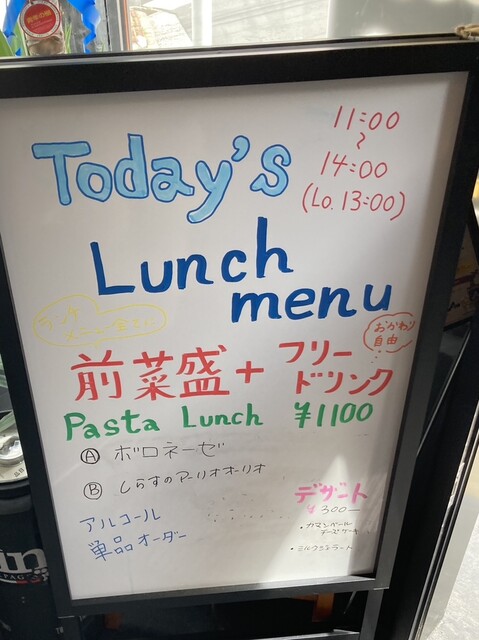 Today's
11:00
~
14:00
(Lo. 13:00)
Lunch
menu
おかわり
自由
前菜盛+フリー
ドリンク
Pasta Lunch ¥1100
Ⓐ ボロネーゼ
Ⓑ しらすのアーリオオーリオ
アルコール
単品オーダー
デザート
¥300ー
・カマンベール
チーズケーキ
・ミルクジェラート